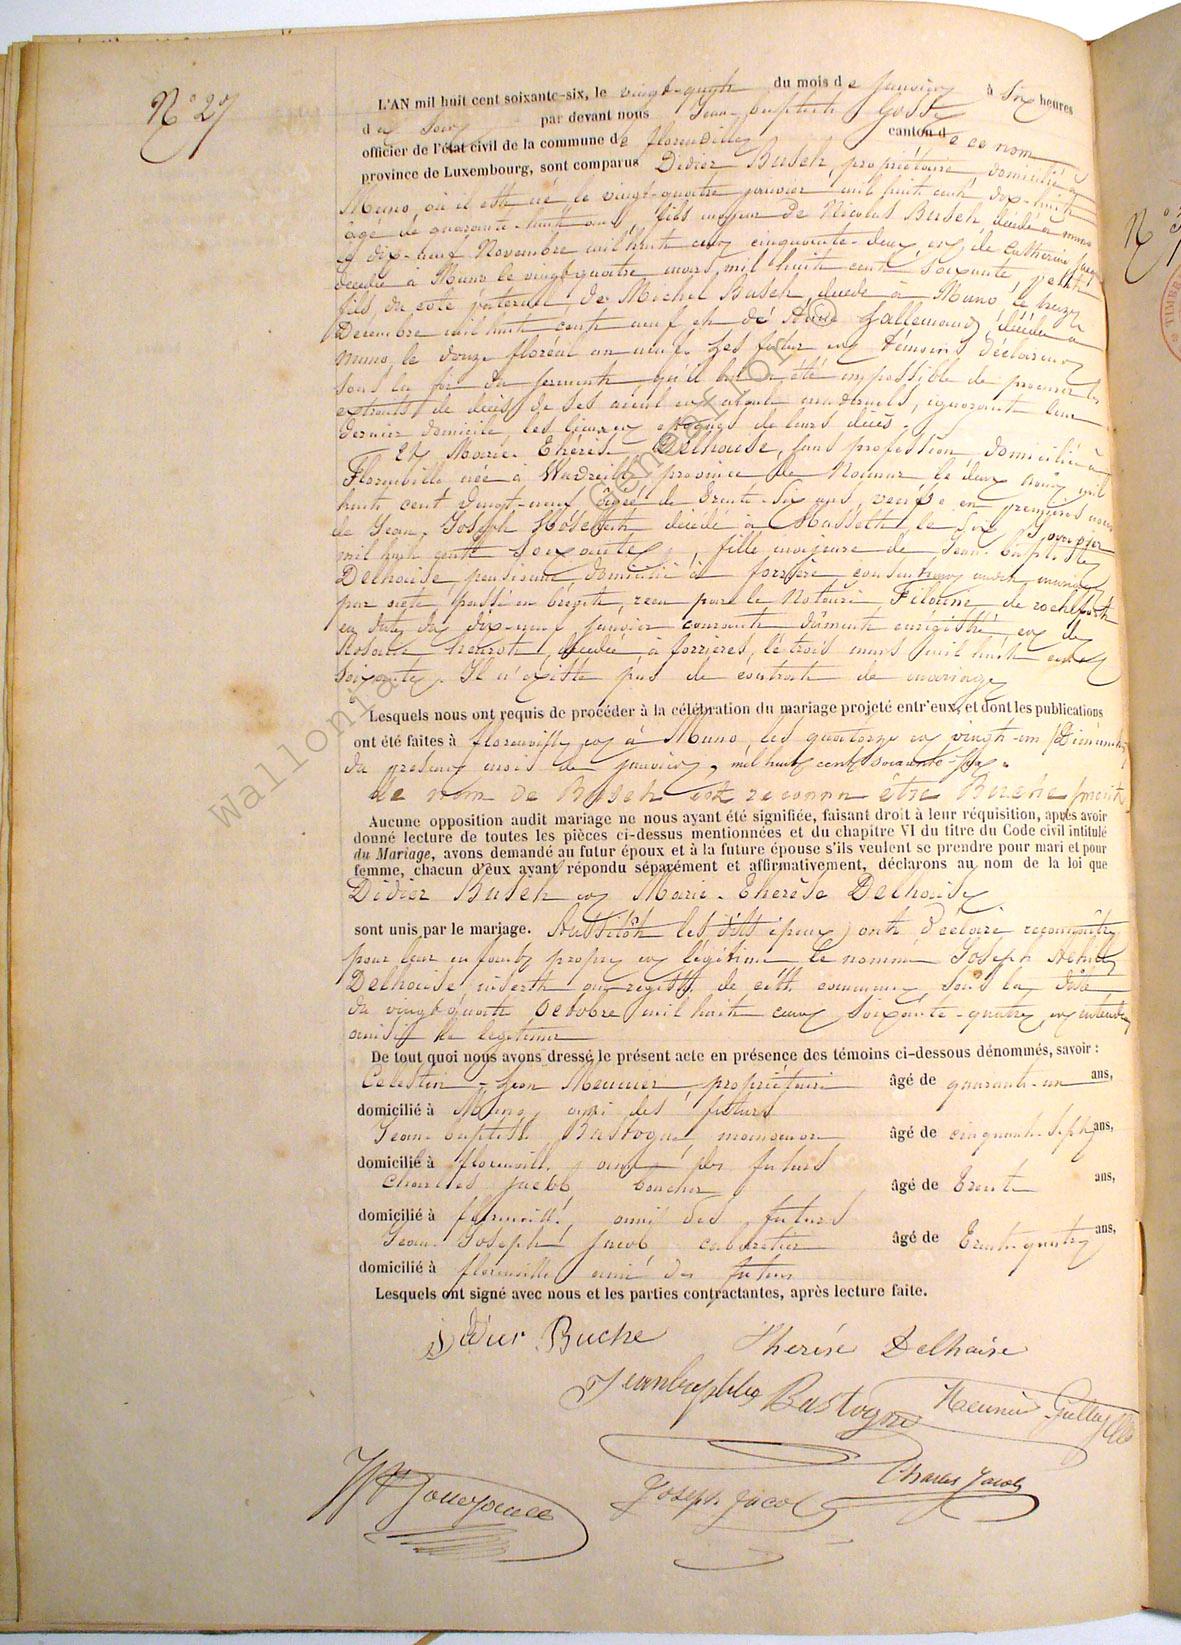 N° 27
L'AN mil huit cent soixante-six, le vingt-quatre du mois de Janvier à six heures
du soir par devant nous Jean baptiste
officier de l'état civil de la commune de florenville canton de ce nom
province de Luxembourg, sont comparus Didier Busch, propriétaire, domicilié à
Muno, où il est né le vingt-quatre janvier mil huit cent dix-huit
âgé de quarante-huit ans, fils majeur de Nicolas Busch, décédé à muno
le dix-neuf Novembre mil huit cent cinquante-deux et de Catherine
décédée à Muno le vingt quatre mars mil huit cent soixante, petit
fils, du coté paternel de Michel Busch, décédé à Muno, le treize
Decembre mil huit cent neuf et de Anne Lallemand, décédée à
muno, le douze floréal an neuf. Les futur et témoins déclarent
sous la foi du serment, qu'il leur a été impossible de procurer les
extraits de décès de ses aieul et aieule maternels, ignorant leur
dernier domicile, les lieux et époques de leurs décès.
Et Marie Thérèse Delhaise, sans profession domiciliée à
Florenville née à province de Namur, le deux mil
huit cent vingt-neuf âgée de trente-six ans, veuve en premières noces
de Jean-Joseph décédé à le six
mil huit cent soixante, fille majeure de Jean-Baptiste
Delhaise, pensionné, domicilié à forrière, consentant mariage
par acte passé en brevet, reçu par le Notaire de rochefort
en date du dix-neuf janvier courant dûment enrégistré, et de
Rosalie décédée à forrières, le trois mars mil huit cent
soixante. Il n'existe pas de contrat de mariage
Lesquels nous ont requis de procéder à la célébration du mariage projeté entr'eux, et dont les publications
ont été faites à florenville et à Muno, les quatorze et vingt-un Dimanches
du présent mois de janvier, mil huit cent soixante-six.
Le nom de Busch est reconnu être Buche
Aucune opposition audit mariage ne nous ayant été signifiée, faisant droit à leur réquisition, après avoir
donné lecture de toutes les pièces ci-dessus mentionnées et du chapitre VI du titre du Code civil intitulé
du Mariage, avons demandé au futur époux et à la future épouse s'ils veulent se prendre pour mari et pour
femme, chacun d'eux ayant répondu séparément et affirmativement, déclarons au nom de la loi que
Didier Busch et Marie-Thérèse Delhaise
sont unis par le mariage. Aussitôt les dits époux ont déclaré reconnaître
pour leur enfant propre et légitime le nommé Joseph Achille
Delhaise, inscrit au registre de cette commune, sous la date
du vingt-quatre Octobre mil huit cent soixante-quatre, et entendent
ainsi le légitimer
De tout quoi nous avons dressé le présent acte en présence des témoins ci-dessous dénommés, savoir :
Celestin-Jean Meunier, propriétaire âgé de quarante-un ans,
domicilié à Muno, ami des futurs
Jean-baptiste Bastogne, manoeuvre âgé de cinquante-sept ans,
domicilié à florenville, ami des futurs
Charles Jacob, boucher âgé de trente ans,
domicilié à florenville, ami des futurs
Jean-Joseph Jacob cabaretier âgé de trente-quatre ans,
domicilié à florenville ami des futurs
Lesquels ont signé avec nous et les parties contractantes, après lecture faite.
Didier Buche Thérèse Delhaise
Jeanbaptiste Bastogne Meunier
Joseph Jacob Charles Jacob